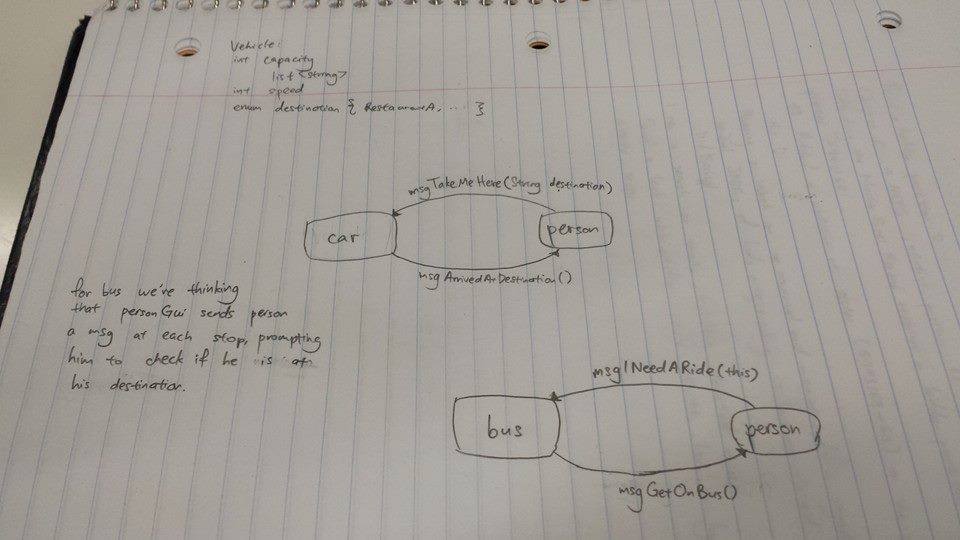 Vehicle:
int capacity
list <string>
int speed
enum destination { RestaurantA, ... }
msgTakeMeHere(String destination)
car
person
msgArrivedAtDestination()
for bus we're thinking
that personGui sends person
a msg at each stop, prompting
him to check if he is at
his destination.
msgINeedARide(this)
bus
person
msgGetOnBus()